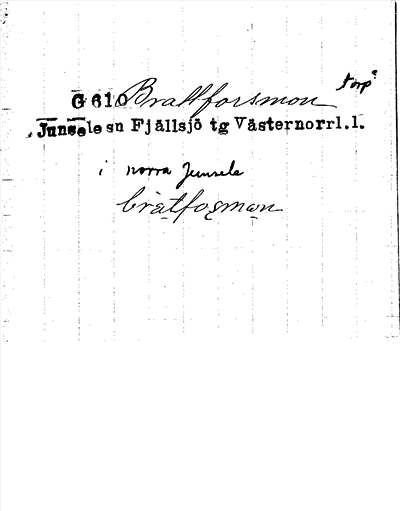 torp?
G 610 Brattforsmon
Junsele sn Fjällsjö tg Västernorrl.l.
i norra Junsele
bràtfoşmạn